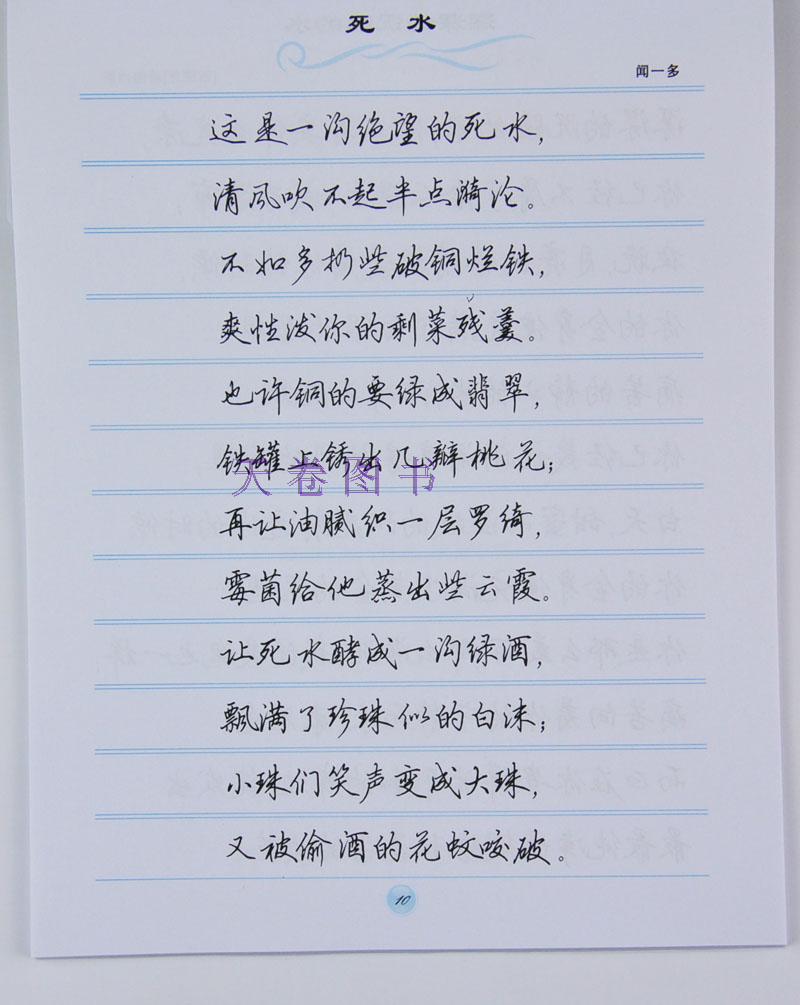 死 水
闻一多
这是一沟绝望的死水，
清风吹不起半点漪沦。
不如多扔些破铜烂铁，
爽性泼你的剩菜残羹。
也许铜的要绿成翡翠，
铁罐上锈出几瓣桃花；
天卷图书
再让油腻织一层罗绮，
霉菌给他蒸出些云霞。
让死水酵成一沟绿酒，
飘满了珍珠似的白沫；
小珠们笑声变成大珠，
又被偷酒的花蚊咬破。
10